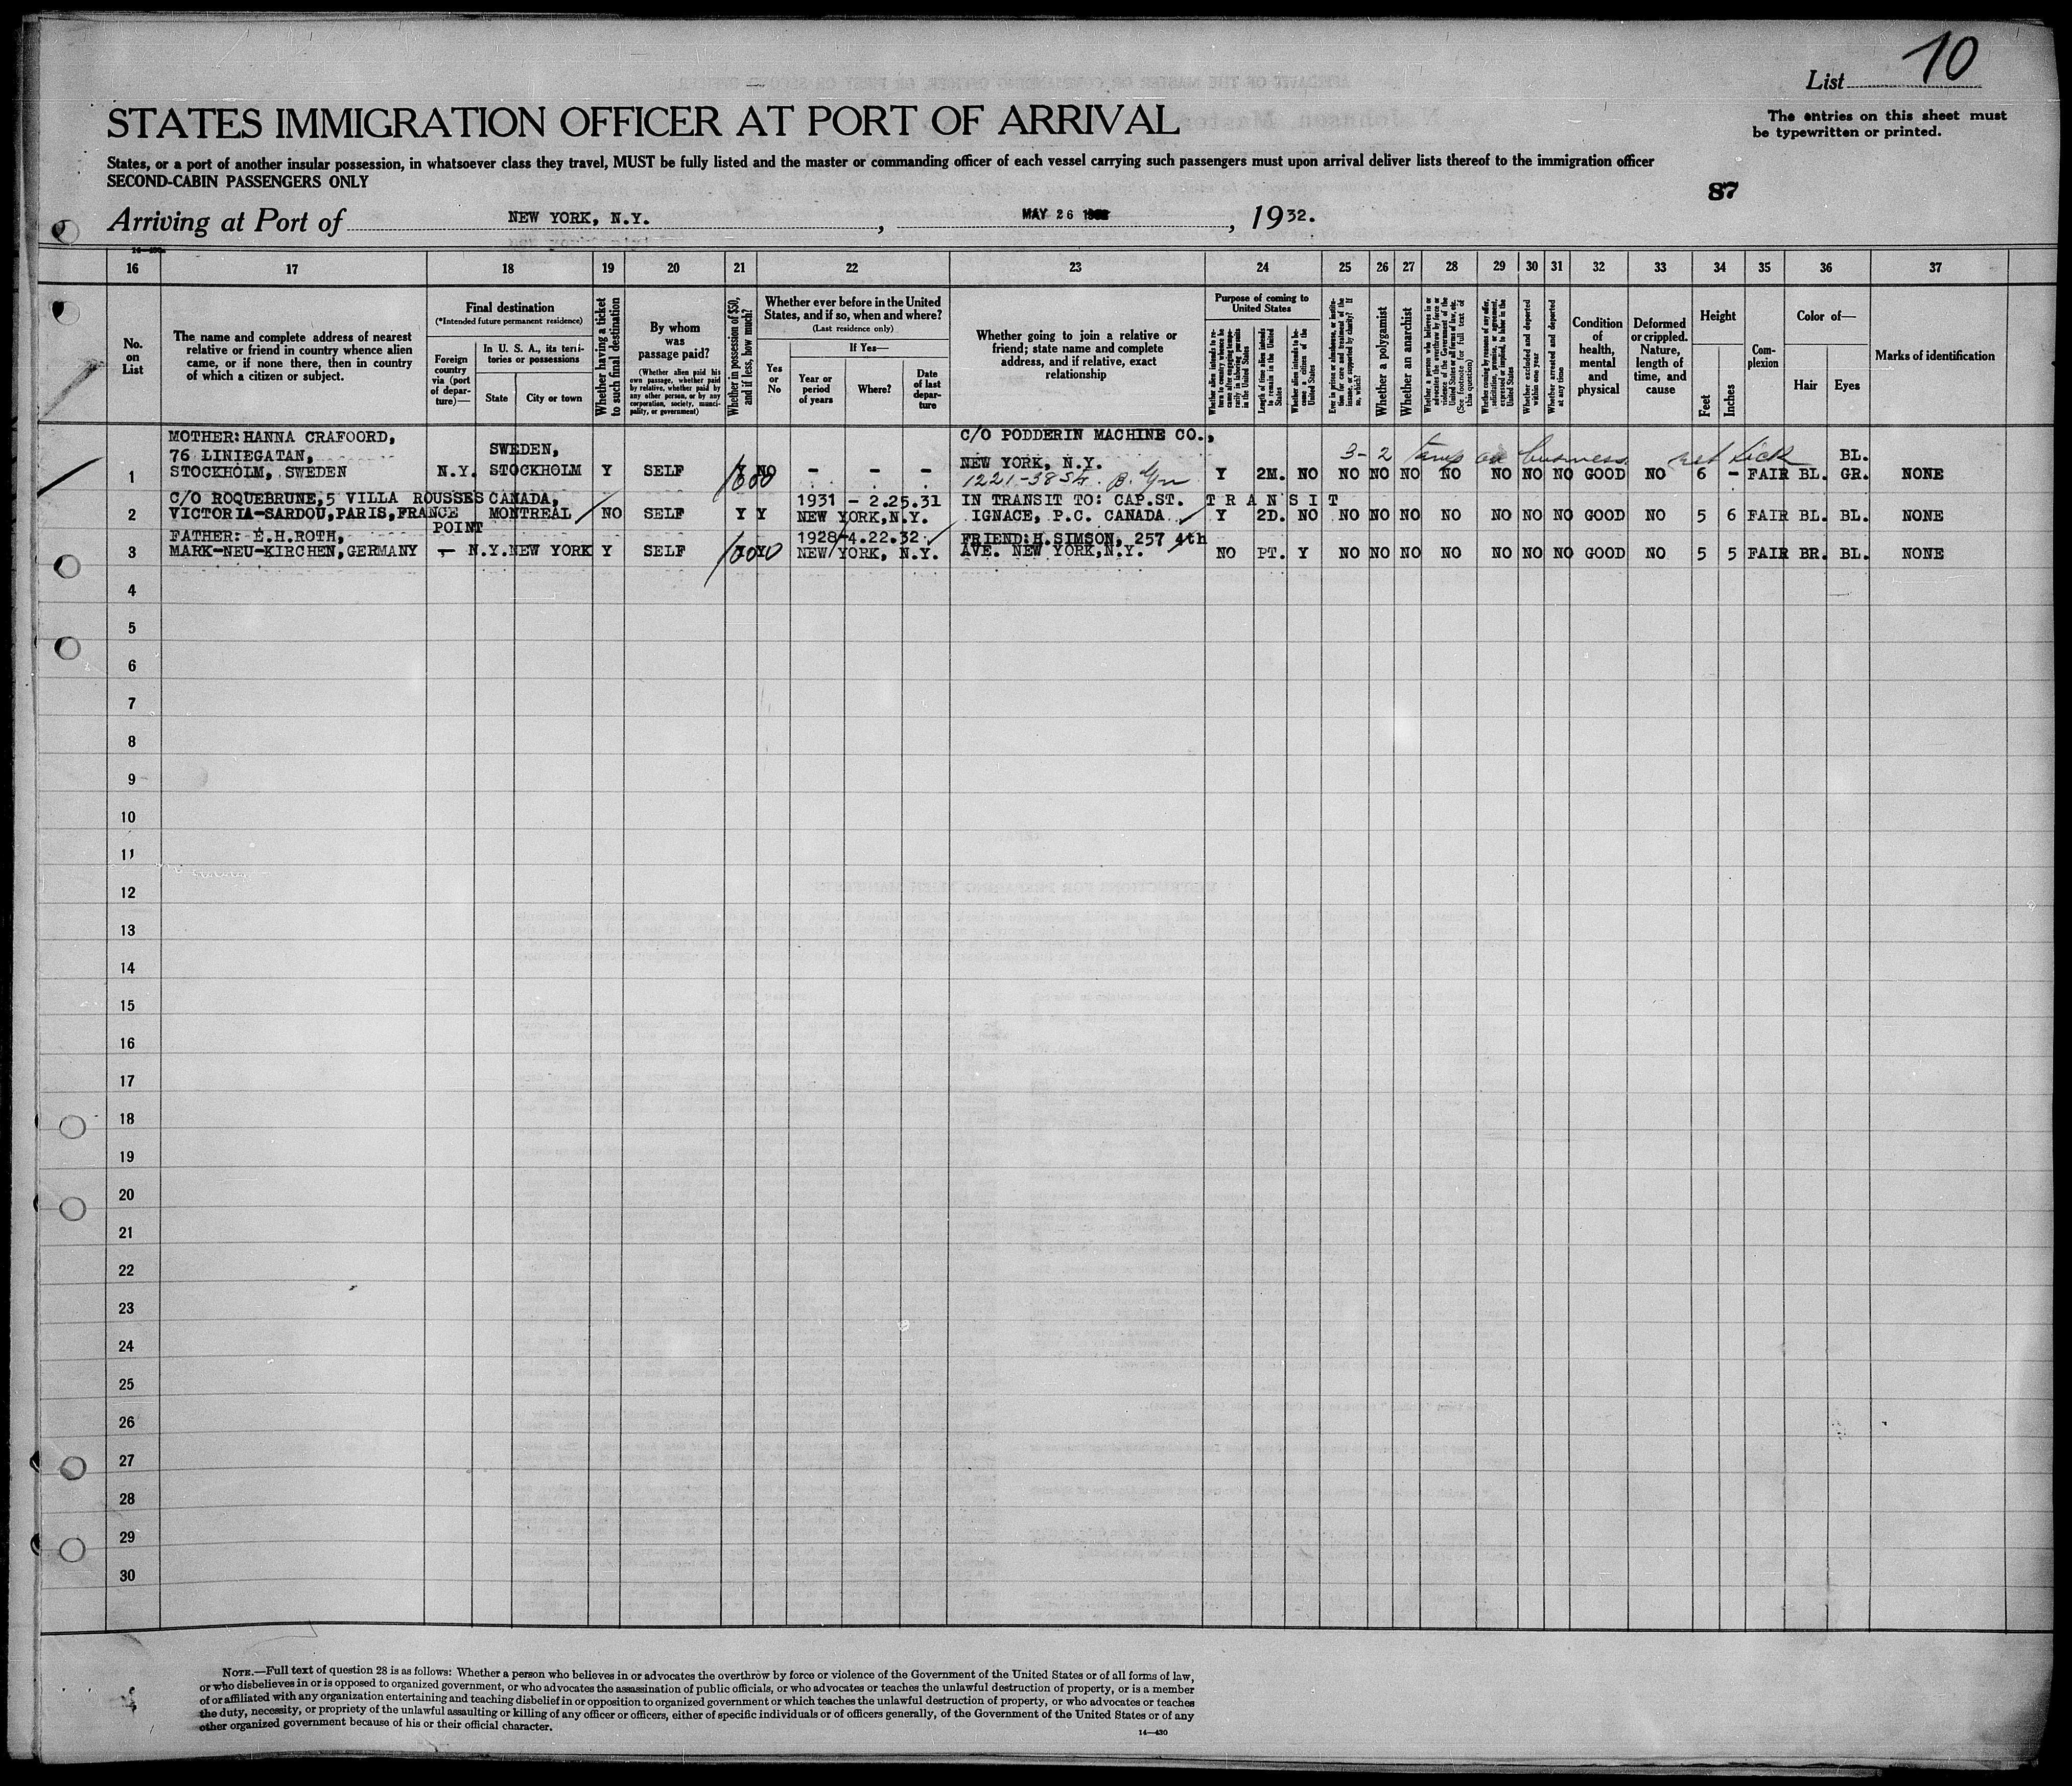 List 10
The entries on this sheet must
be typewritten or printed.
STATES IMMIGRATION OFFICER AT PORT OF ARRIVAL
States, or a port of another insular possession, in whatsoever class they travel, MUST be fully listed and the master or commanding officer of each vessel carrying such passengers must upon arrival deliver lists thereof to the immigration officer
SECOND-CABIN PASSENGERS ONLY
87
Arriving at Port of NEW YORK, N.Y. , MAY 26 , 1932.
16 17 18 19 20 21 22 23 24 25 26 27 28 29 30 31 32 33 34 35 36 37
No.
on
List
The name and complete address of nearest
relative or friend in country whence alien
came, or if none there, then in country
of which a citizen or subject.
Final destination
(*Intended future permanent residence)
Foreign
country
via (port
of depar-
ture)—
In U. S. A., its terri-
tories or possessions
State
City or town
Whether having a ticket
to such final destination
By whom
was
passage paid?
(Whether alien paid his
own passage, whether paid
by relative, whether paid by
any other person, or by any
corporation, society, munici-
pality, or government)
Whether in possession of $50,
and if less, how much?
Whether ever before in the United
States, and if so, when and where?
(Last residence only)
Yes
or
No
If Yes—
Year or
period
of years
Where?
Date
of last
depar-
ture
Whether going to join a relative or
friend; state name and complete
address, and if relative, exact
relationship
Purpose of coming to
United States
Whether alien intends to re-
turn to country whence he
came after engaging tempo-
rarily in laboring pursuits
in the United States
Length of time alien intends
to remain in the United
States
Whether alien intends to be-
come a citizen of the
United States
Ever in prison or almshouse, or institu-
tion for care and treatment of the
insane, or supported by charity? If
so, which?
Whether a polygamist
Whether an anarchist
Whether a person who believes in or
advocates the overthrow by force or
violence of the Government of the
United States or all forms of law, etc.
(See footnote for full text of
this question)
Whether coming by reason of any offer,
solicitation, promise, or agreement,
expressed or implied, to labor in the
United States
Whether excluded and deported
within one year
Whether arrested and deported
at any time
Condition
of
health,
mental
and
physical
Deformed
or crippled.
Nature,
length of
time, and
cause
Height
Feet
Inches
Com-
plexion
Color of—
Hair
Eyes
Marks of identification
MOTHER: HANNA CRAFOORD, C/O PODDERIN MACHINE CO.,
76 LINIEGATAN, SWEDEN, NEW YORK, N.Y. 3-2 BL.
1 STOCKHOLM, SWEDEN N.Y. STOCKHOLM Y SELF Y NO - - - 1221-38 St. B'klyn Y 2M. NO NO NO NO NO NO NO NO GOOD NO 6 - FAIR BL. GR. NONE
C/O ROQUEBRUNE,5 VILLA ROUSSES CANADA, 1931 - 2.25.31 IN TRANSIT TO: CAP.ST. TRANSIT
2 VICTORIA-SARDOU,PARIS,FRANCE MONTREAL NO SELF Y Y NEW YORK,N.Y. IGNACE, P.C. CANADA Y 2D. NO NO NO NO NO NO NO NO GOOD NO 5 6 FAIR BL. BL. NONE
POINT
FATHER: E.H.ROTH, 1928-4.22.32 FRIEND:H.SIMSON, 257 4th
3 MARK-NEU-KIRCHEN,GERMANY - N.Y. NEW YORK Y SELF NEW YORK, N.Y. AVE. NEW YORK,N.Y. NO PT. Y NO NO NO NO NO NO NO GOOD NO 5 5 FAIR BR. BL. NONE
4
5
6
7
8
9
10
11
12
13
14
15
16
17
18
19
20
21
22
23
24
25
26
27
28
29
30
NOTE.—Full text of question 28 is as follows: Whether a person who believes in or advocates the overthrow by force or violence of the Government of the United States or of all forms of law,
or who disbelieves in or is opposed to organized government, or who advocates the assassination of public officials, or who advocates or teaches the unlawful destruction of property, or is a member
of or affiliated with any organization entertaining and teaching disbelief in or opposition to organized government or which teaches the unlawful destruction of property, or who advocates or teaches
the duty, necessity, or propriety of the unlawful assaulting or killing of any officer or officers, either of specific individuals or of officers generally, of the Government of the United States or of any
other organized government because of his or their official character.
14—430